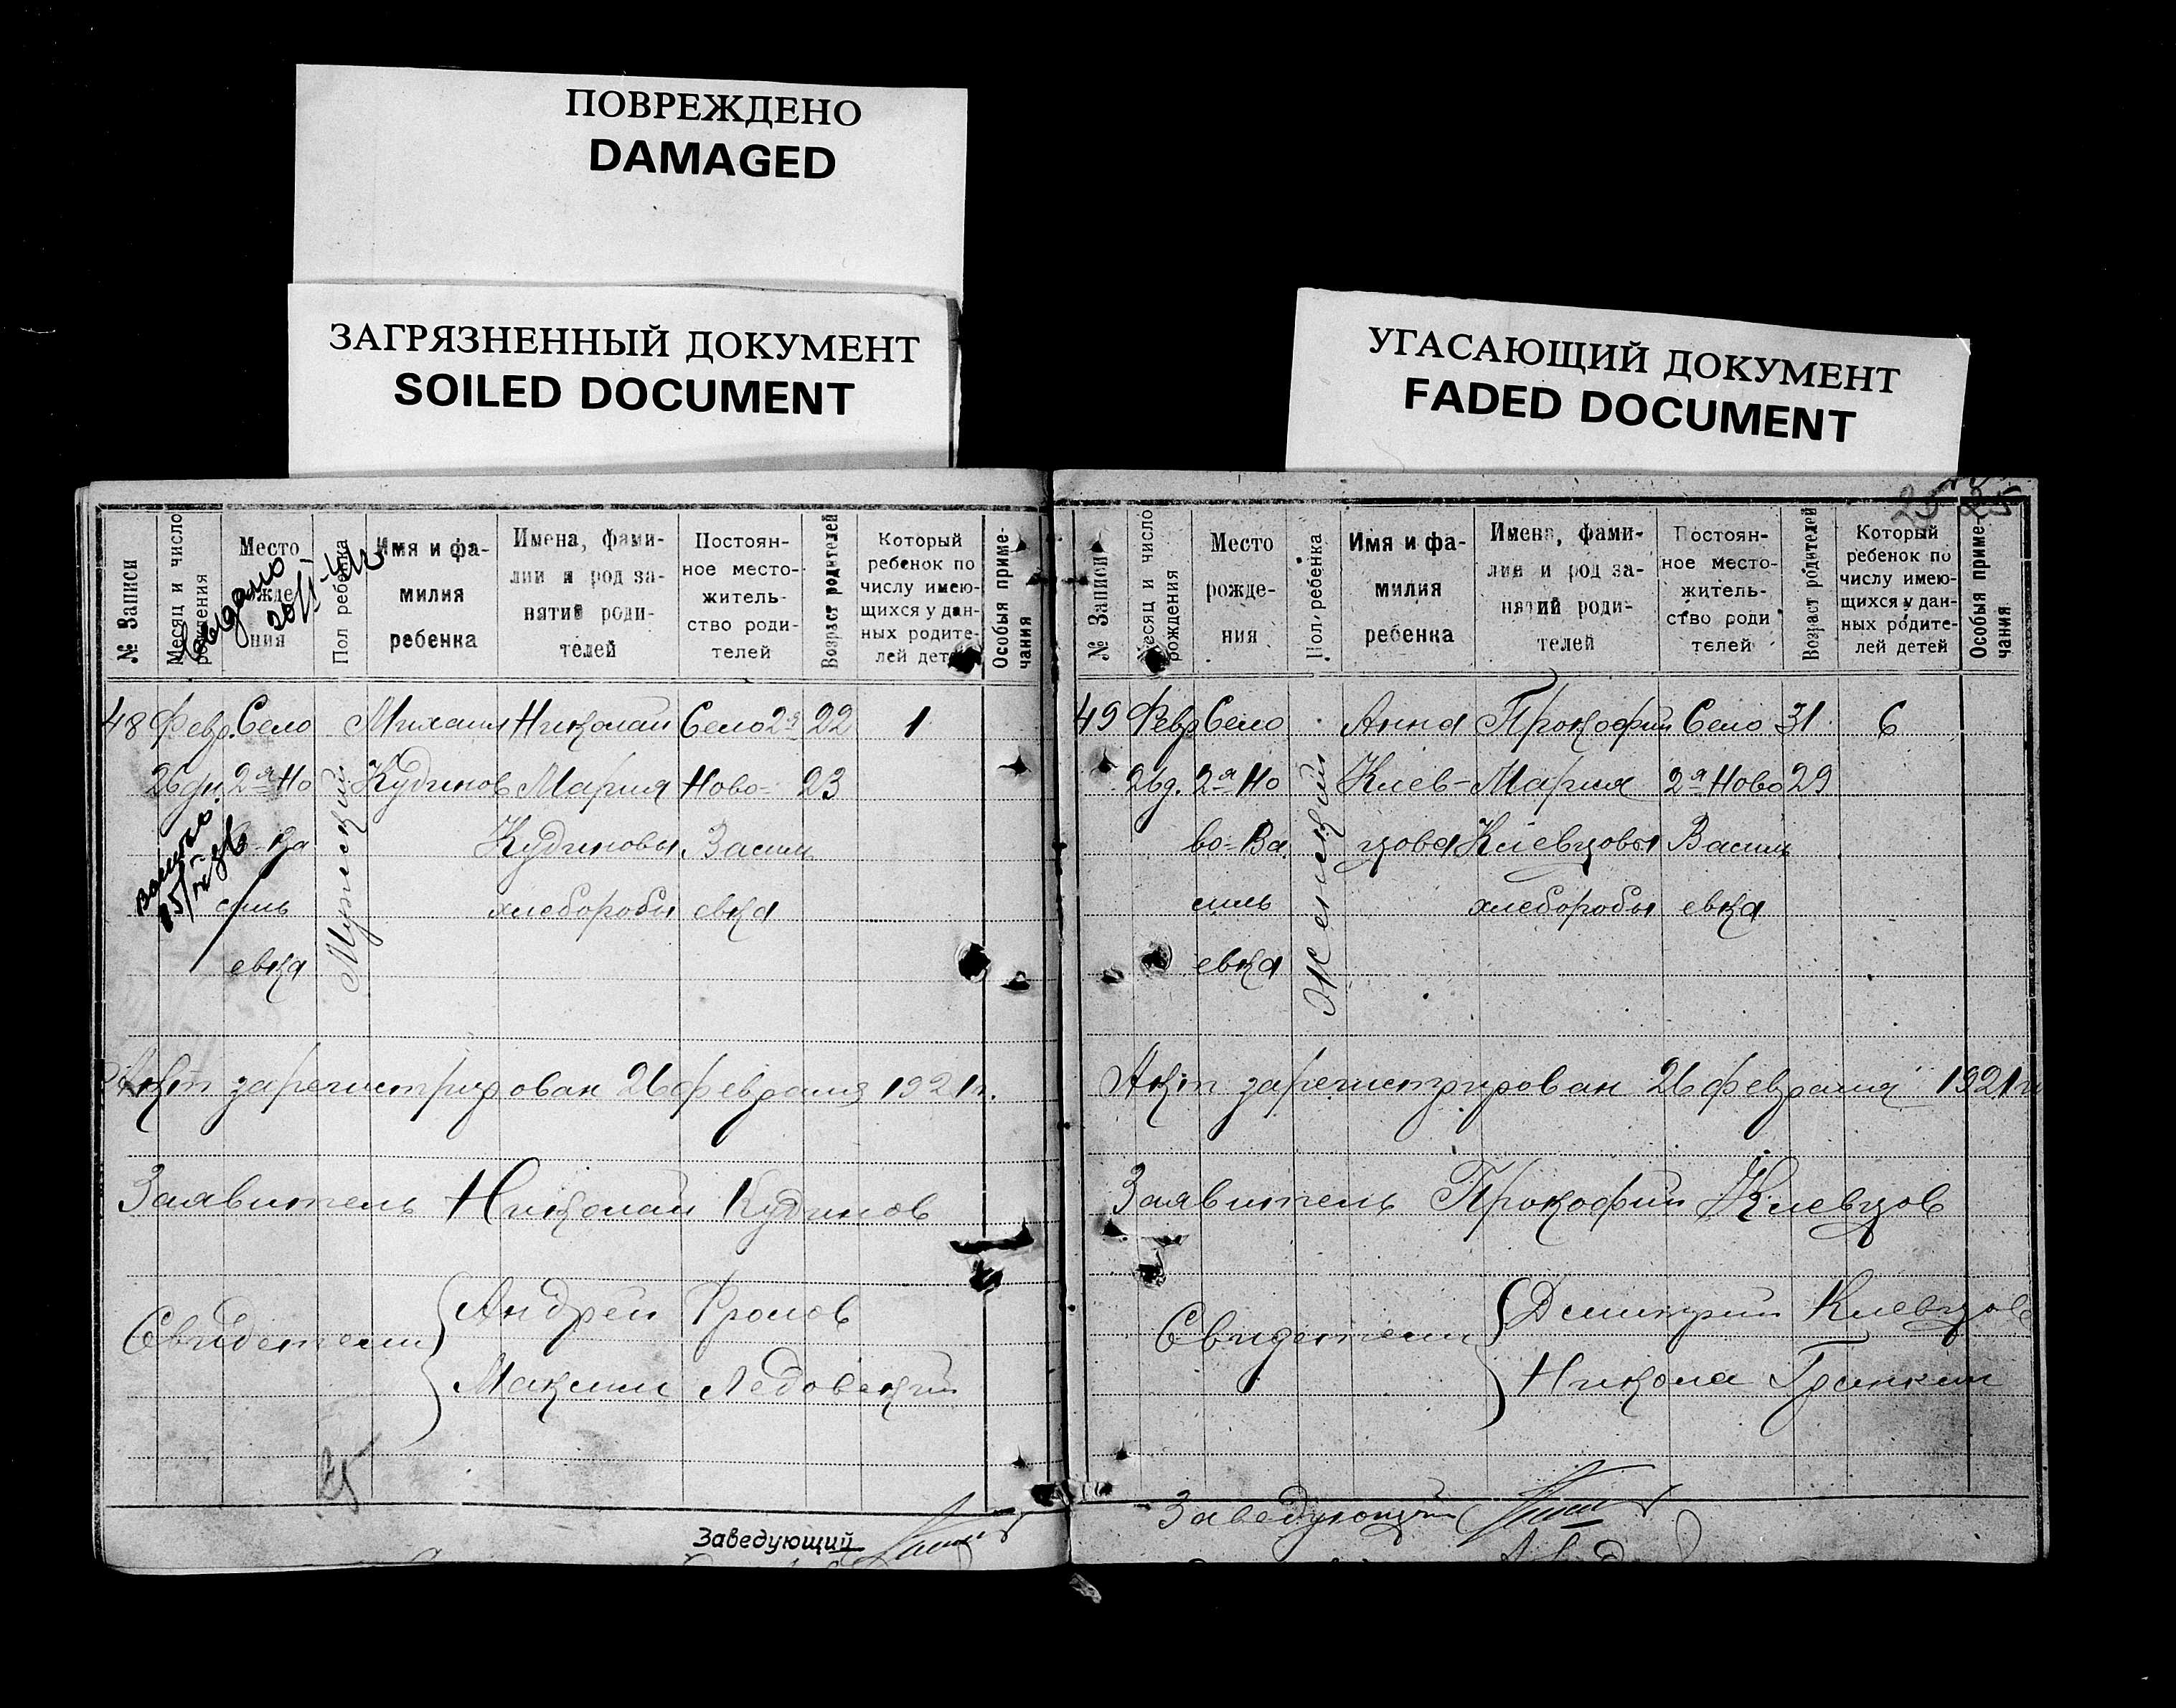 ПОВРЕЖДЕНО
DAMAGED
ЗАГРЯЗНЕННЫЙ ДОКУМЕНТ
SOILED DOCUMENT
УГАСАЮЩИЙ ДОКУМЕНТ
FADED DOCUMENT
№ Записи
Месяц и число
рождения
Место
рожде-
ния
Пол ребенка
Имя и фа-
милия
ребенка
Имена, фами-
лии и род за-
нятий роди-
телей
Постоян-
ное место-
житель-
ство роди-
телей
Возраст родителей
Который
ребенок по
числу имею-
щихся у дан-
ных родите-
лей детей
Особыя приме-
чания
Выдано
48 Февр. Село Михаил Николай Село 2я 22 1
26 дн 2я Но Кудинов Мария Ново- 23
во-Ва Кудиновы Василь
силь хлеборобы евка
евка
Мужской
Акт зарегистрирован 26 февраля 1921 г.
Заявитель Николай Кудинов
Свидетели
Андрей Фролов
Максим Ледовский
25
Заведующий
25 25
№ Записи
Месяц и число
рождения
Место
рожде-
ния
Пол ребенка
Имя и фа-
милия
ребенка
Имена, фами-
лии и род за-
нятий роди-
телей
Постоян-
ное место-
житель-
ство роди
телей
Возраст родителей
Который
ребенок по
числу имею-
щихся у дан-
ных родите-
лей детей
Особыя приме-
чания
49 Февр Село Анна Прокофий Село 31 6
26 д. 2я Но Клев- Мария 2я Ново 29
во-Ва цова Клевцовы Василь
силь хлеборобы евка
евка
Женский
Акт зарегистрирован 26 февраля 1921 г
Заявитель Прокофий Клевцов
Свидетели
Дмитрий Клевцов
Никола Гранкин
Заведующий